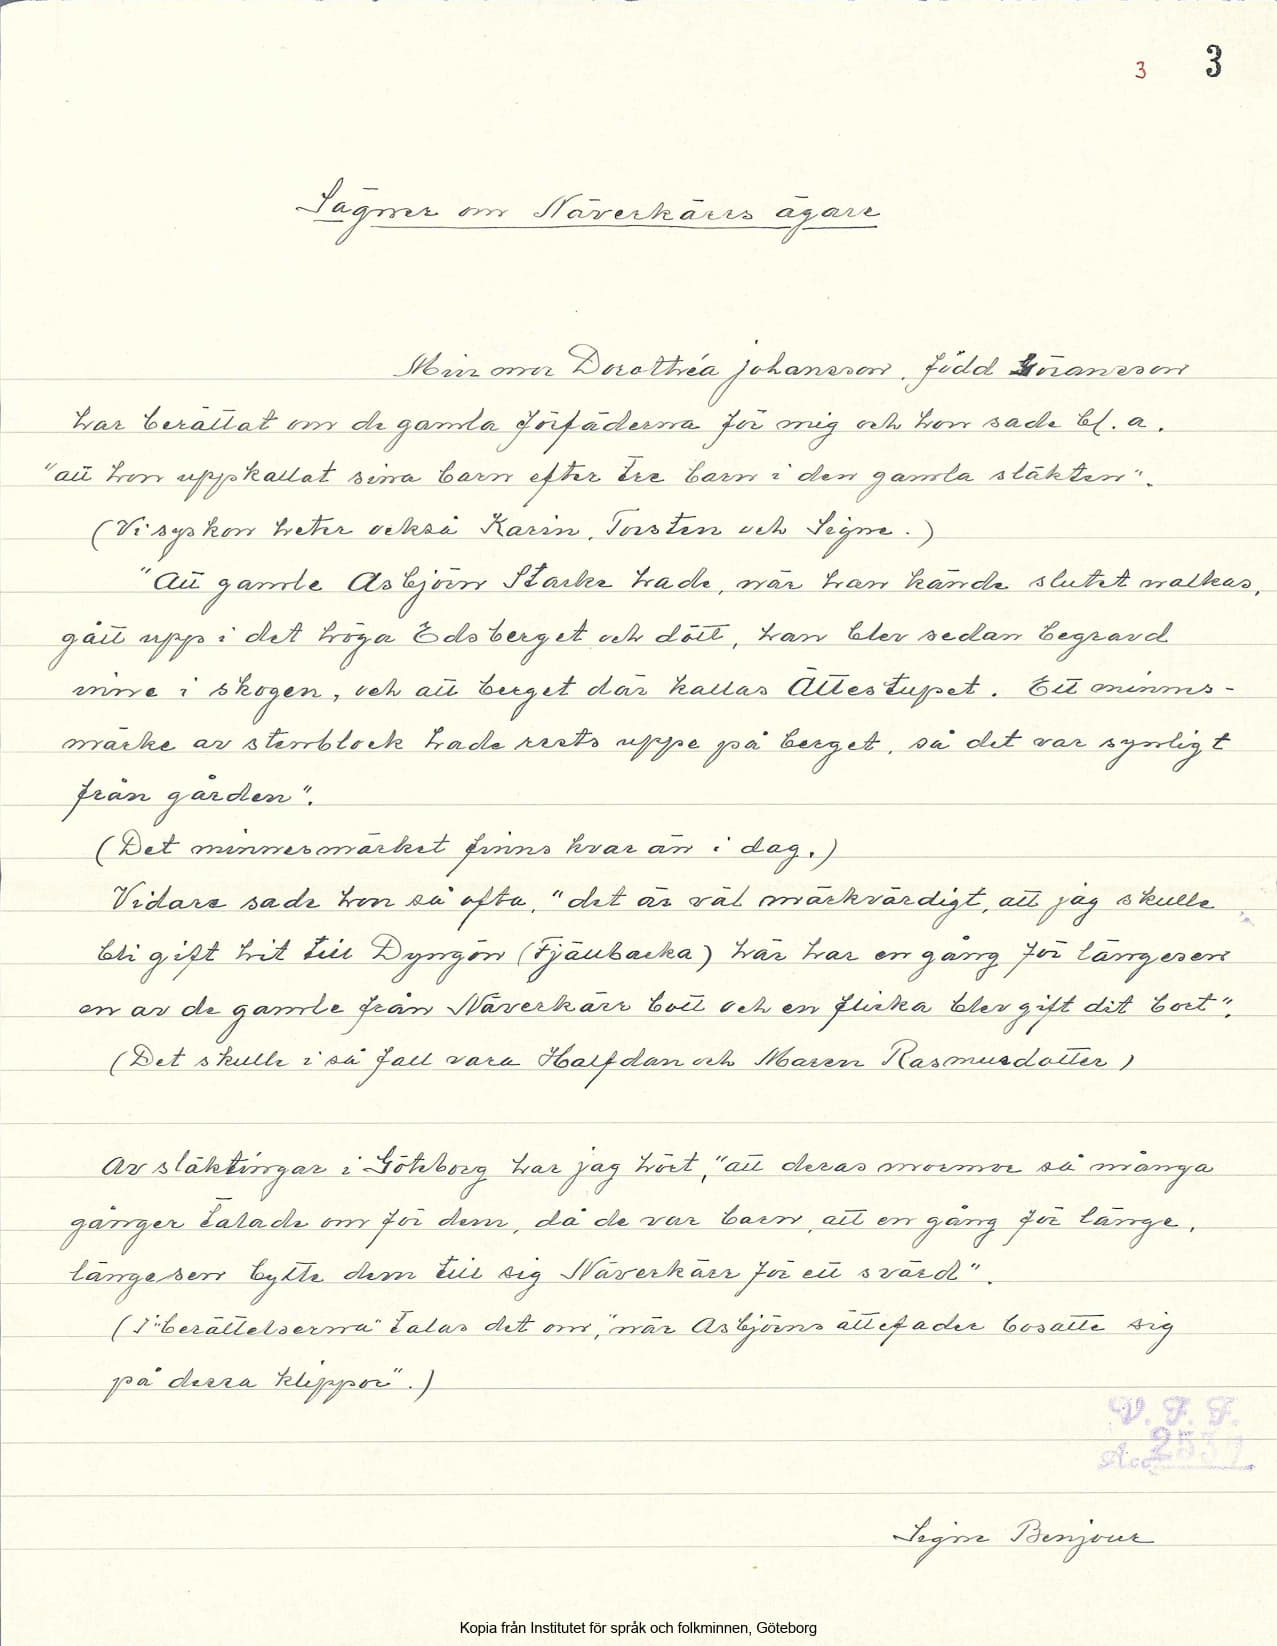 3 3
Sägner om Näverkärrs ägare
Min mor Dorothéa Johansson, född Göransson
har berättat om de gamla förfäderna för mig och hon sade bl. a.
"att hon uppkallat sina barn efter tre barn i den gamla släkten".
(Vi syskon heter också Karin, Torsten och Signe.)
"Att gamle Asbjörn Starke hade, när han kände slutet nalkas,
gått upp i det höga Edsberget och dött, han blev sedan begravd
inne i skogen, och att berget där kallas Ättestupet. Ett minnes-
märke av stenblock hade rests uppe på berget, så det var synligt
från gården".
(Det minnesmärket finns kvar än i dag.)
Vidare sade hon så ofta, "det är väl märkvärdigt, att jag skulle
bli gift hit till Dyngön (Fjällbacka) här har en gång för längesen
en av de gamle från Näverkärr bott och en flicka blev gift dit bort".
(Det skulle i så fall vara Halfdan och Maren Rasmusdotter)
Av släktingar i Göteborg har jag hört, "att deras mormor så många
gånger talade om för dem, då de var barn, att en gång för länge,
längesen bytte dem till sig Näverkärr för ett svärd".
(I "berättelserna" talas det om, "när Asbjörns ättefader bosatte sig
på dessa klippor".)
V. F. F.
Acc. 2539
Signe Benjour
Kopia från Institutet för språk och folkminnen, Göteborg